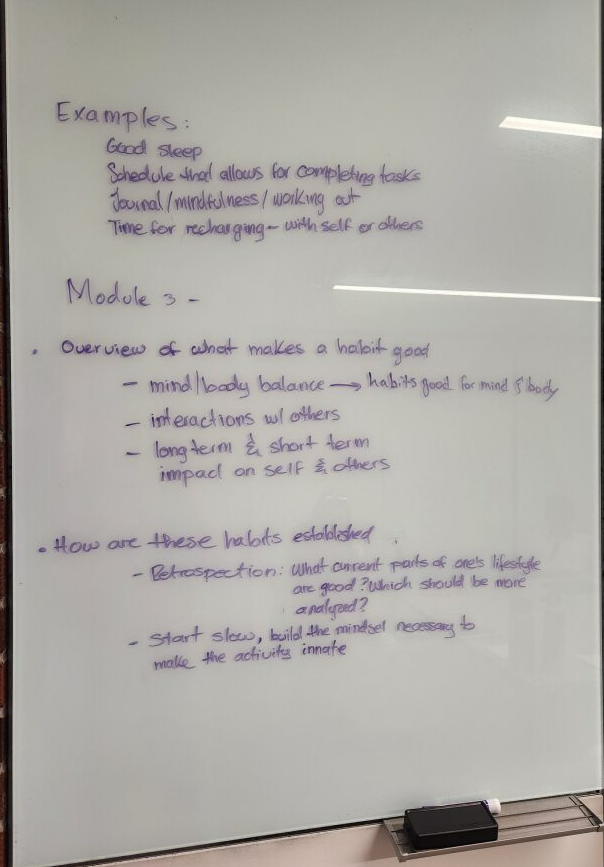 Examples:
Good sleep
Schedule that allows for completing tasks
Journal/mindfulness/working out
Time for recharging - with self or others
Module 3 -
• Overview of what makes a habit good
- mind/body balance → habits good for mind & body
- interactions w/ others
- long term & short term
impact on self & others
• How are these habits established
- Retrospection: What current parts of one's lifestyle
are good? Which should be more
analyzed?
- Start slow, build the mindset necessary to
make the activity innate